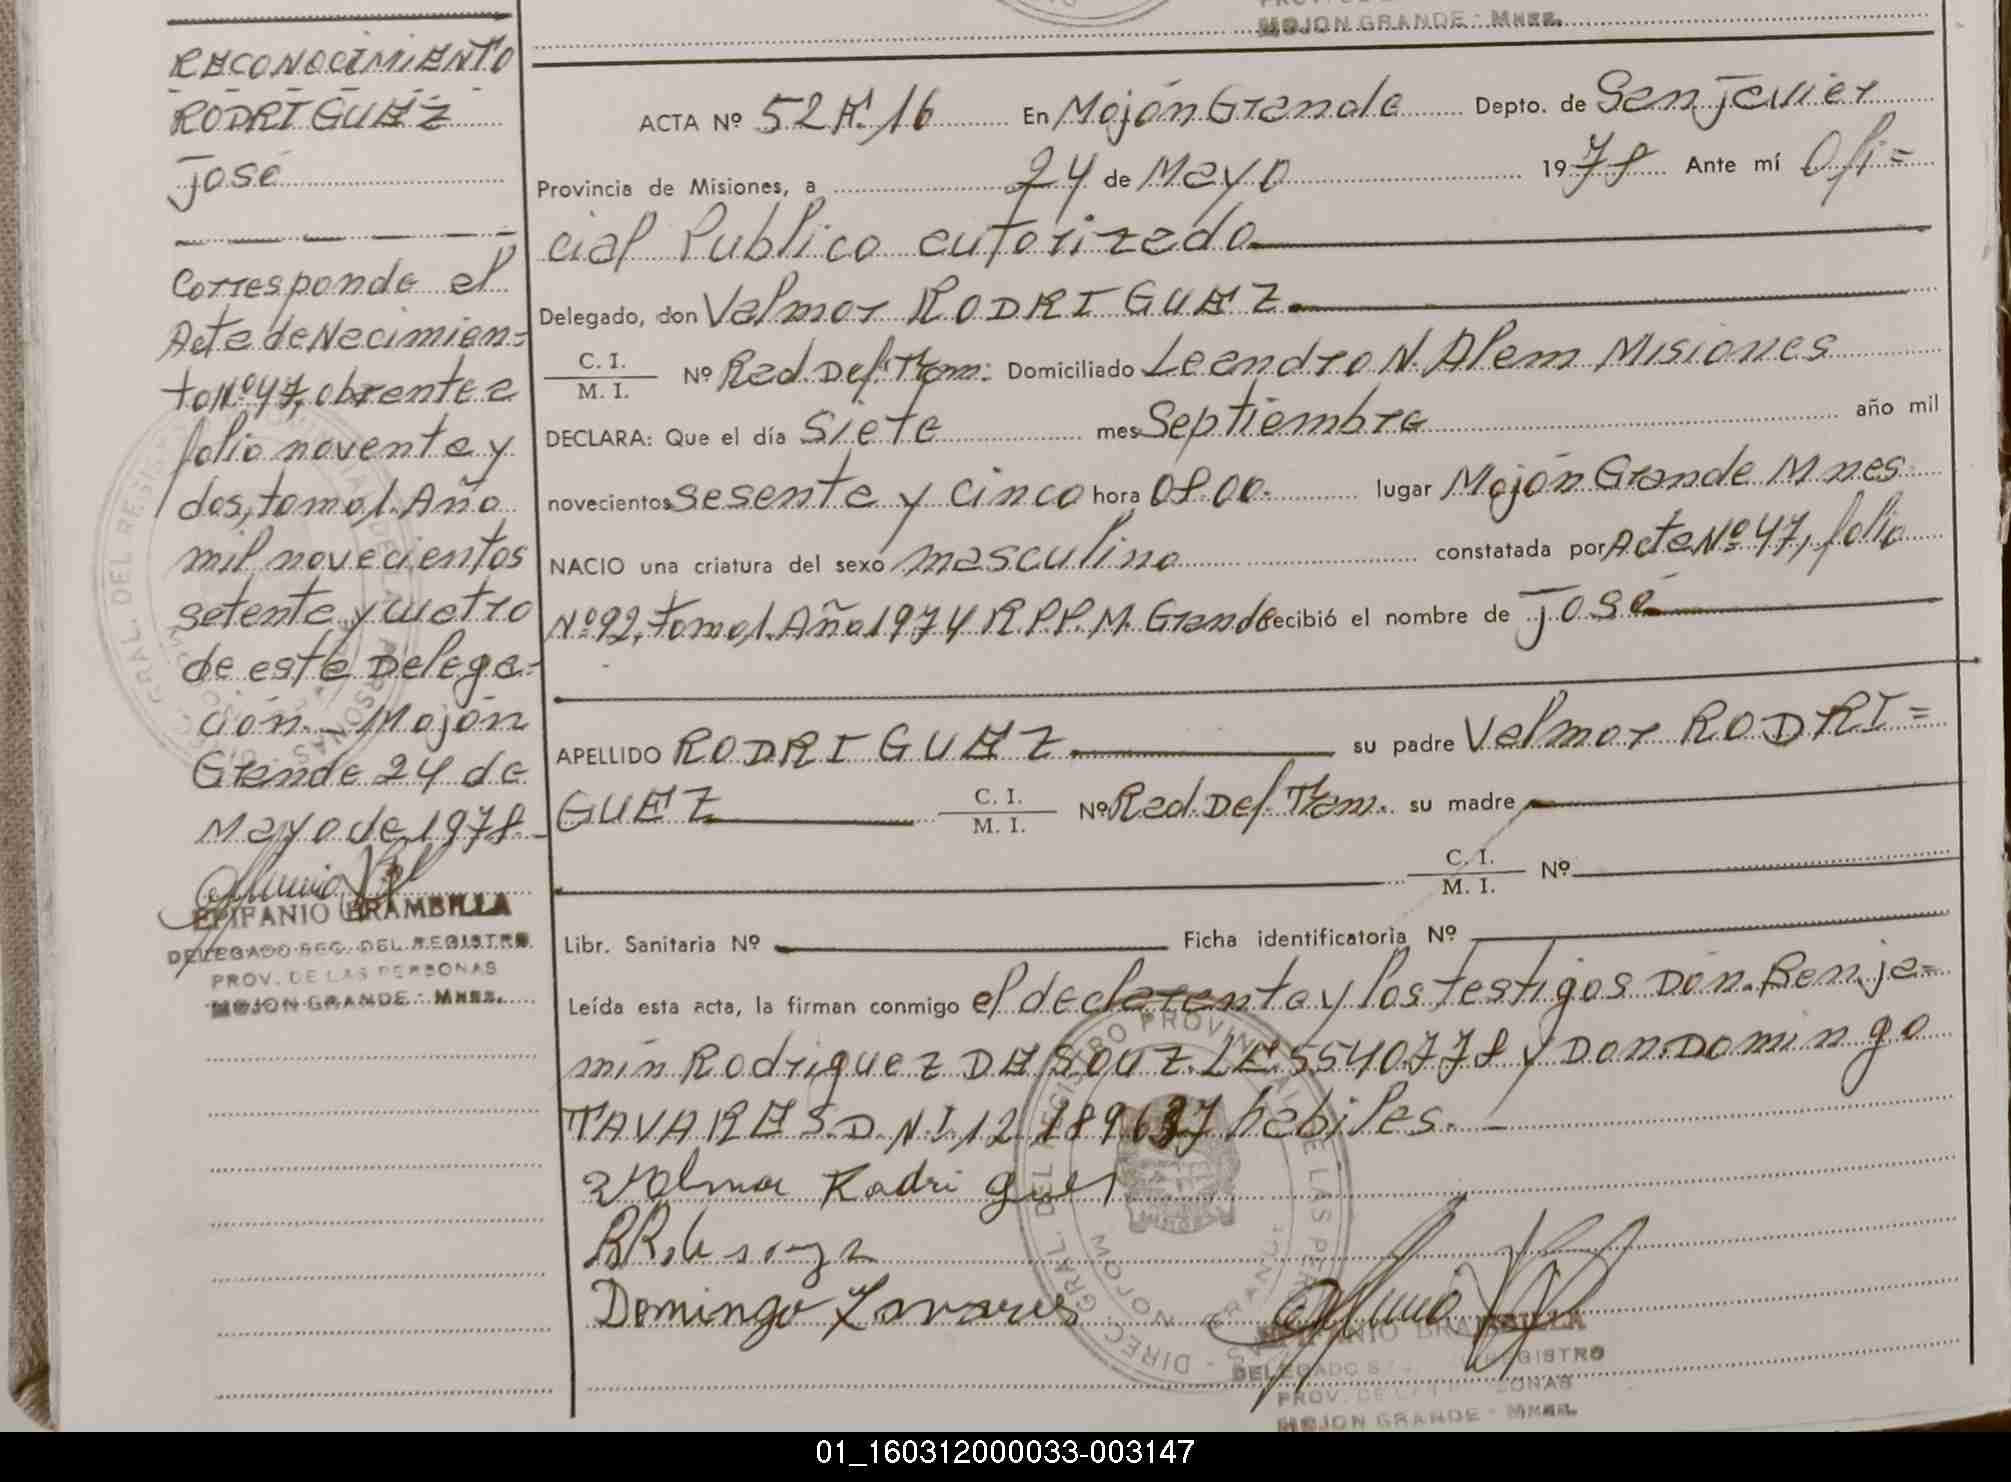 MOJON GRANDE - Mnes.
RECONOCIMIENTO
RODRIGUEZ
José
Corresponde al
Acta de Nacimien=
to Nº 47, obrante a
folio noventa y
dos, tomo 1. Año
mil novecientos
setenta y cuatro
de esta Delega-
ción. - Mojón
Grande 24 de
Mayo de 1978. -
EPIFANIO BRAMBILLA
DELEGADO SEC. DEL REGISTRO
PROV. DE LAS PERSONAS
MOJON GRANDE - Mnes.
ACTA Nº 52 A. 16 En Mojón Grande Depto. de San Javier
Provincia de Misiones, a 24 de Mayo 1978 Ante mí Ofi=
cial Publico autorizado
Delegado, don Valmor RODRIGUEZ
C. I.
M. I. Nº Rad. Def. Tram: Domiciliado Leandro N. Alem Misiones
DECLARA: Que el día Siete mes Septiembre año mil
novecientos sesenta y cinco hora 08.00. lugar Mojón Grande Mnes
NACIO una criatura del sexo masculino constatada por Acta Nº 47, folio
Nº 92, tomo 1. Año 1974 R.P.P. M. Grande recibió el nombre de José
APELLIDO RODRIGUEZ su padre Valmor RODRI=
GUEZ C. I.
M. I. Nº Rad. Def. Tram. su madre
C. I.
M. I. Nº
Libr. Sanitaria Nº Ficha identificatoria Nº
Leída esta acta, la firman conmigo el declarante y los testigos Don. Benja=
min Rodriguez DE SOUZ. L.E. 5540.778 y DON. DOMINGO
TAVARES. D.N.I. 12.189637 habiles. -
Valmor Rodrigues
Domingo Tavares
DIREC. GRAL. DEL REGISTRO PROVINCIAL DE LAS PERSONAS
MOJON GRANDE
EPIFANIO BRAMBILLA
DELEGADO REGISTRO
PROV. DE LAS PERSONAS
MOJON GRANDE - Mnes.
01_160312000033-003147